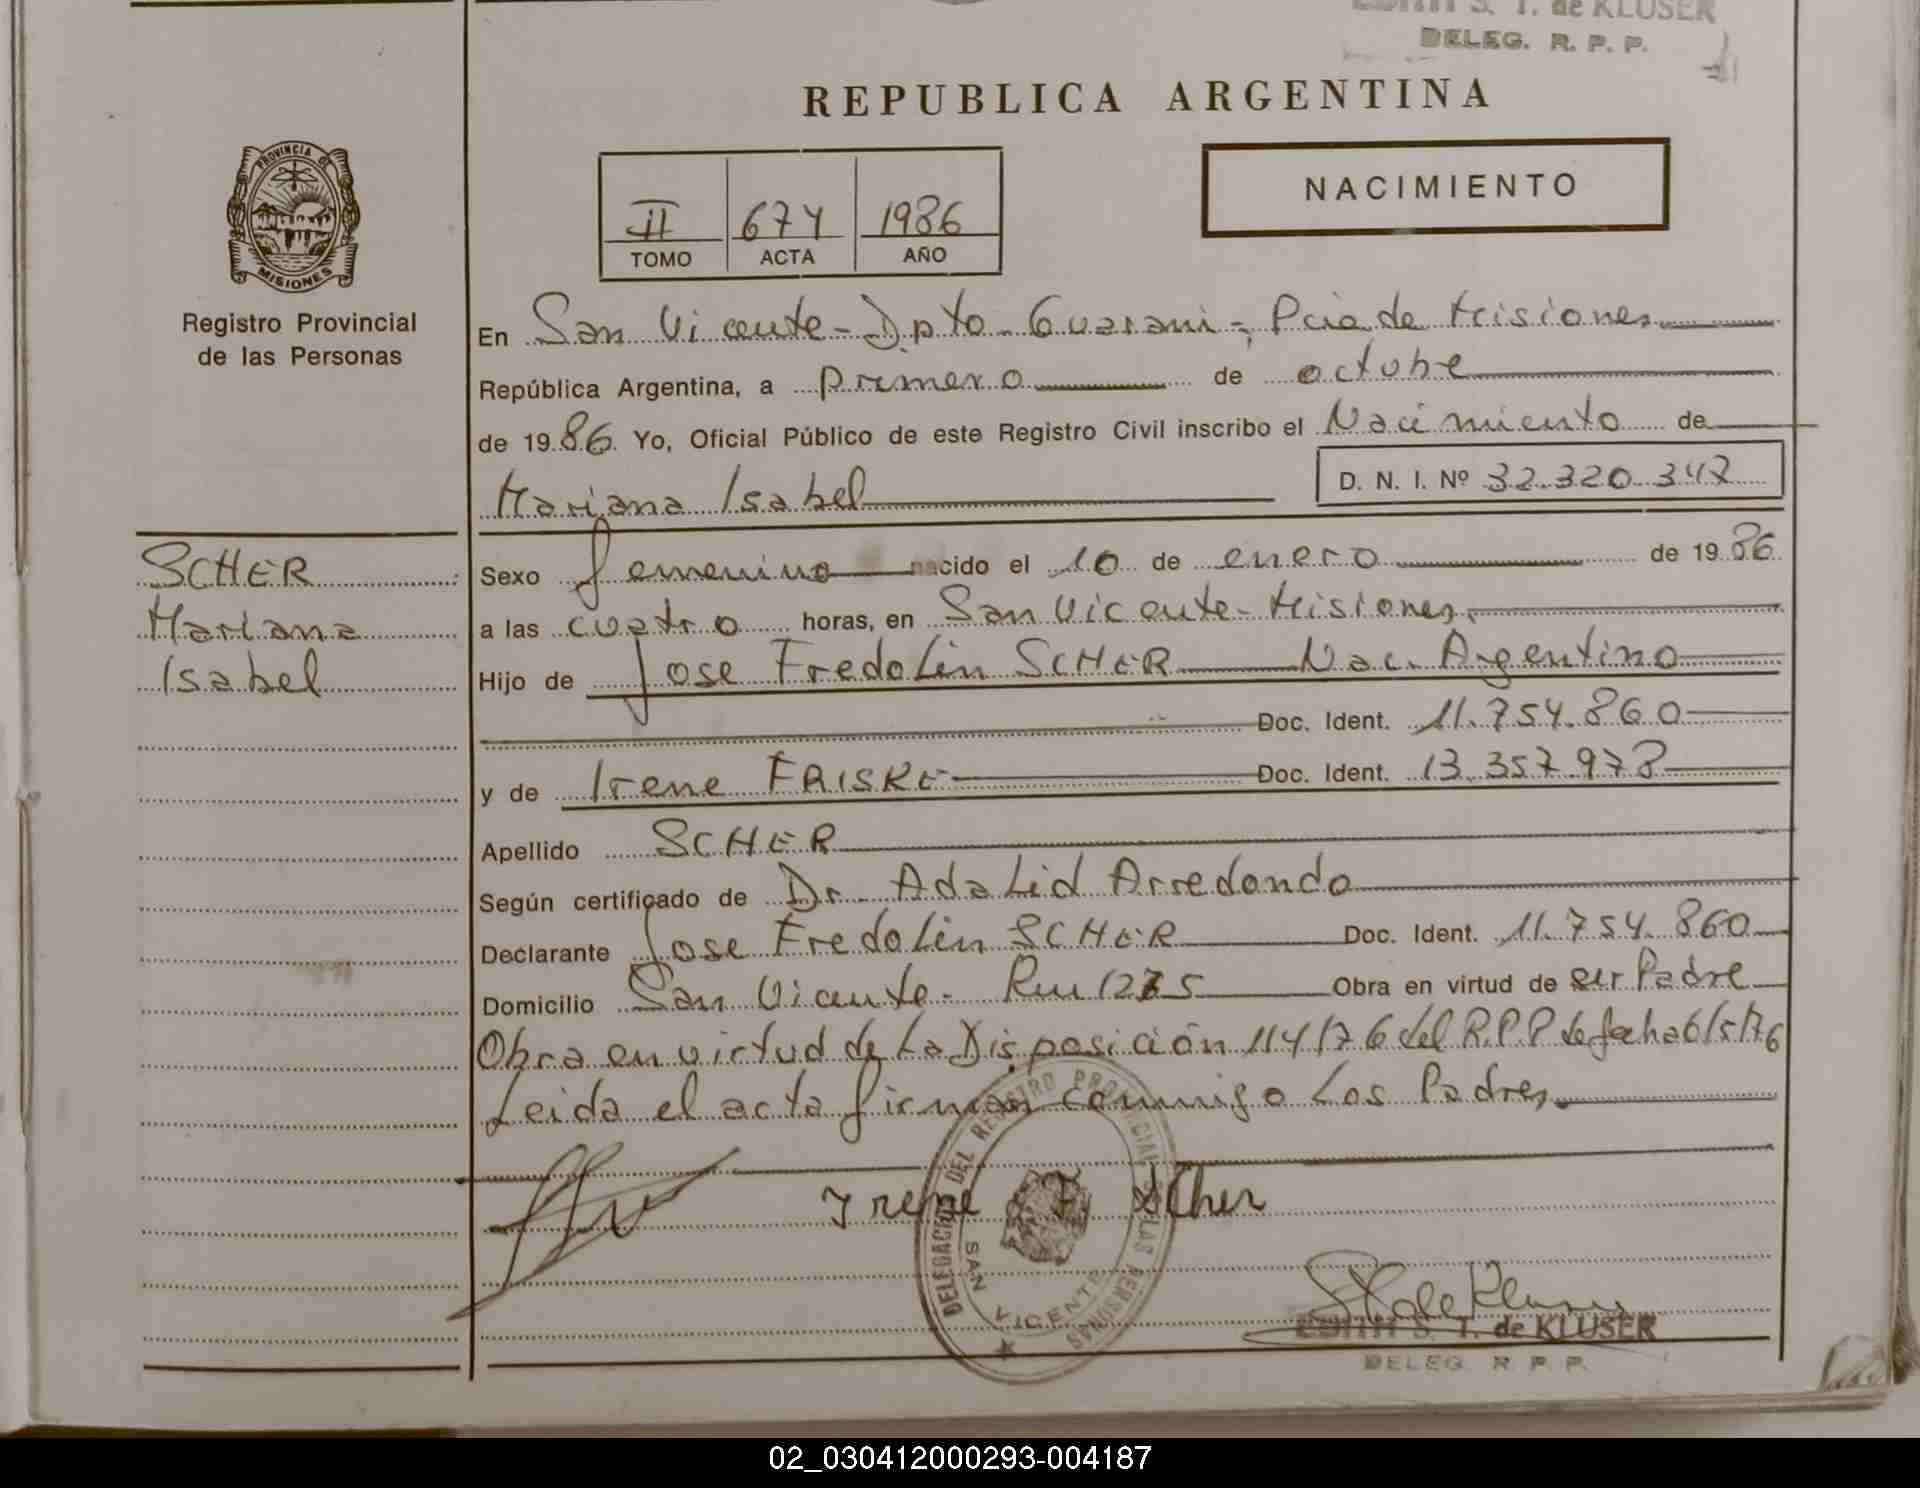 EDITH S. T. de KLUSER
DELEG. R. P. P.
REPUBLICA ARGENTINA
PROVINCIA DE
MISIONES
Registro Provincial
de las Personas
II 674 1986
TOMO ACTA AÑO
NACIMIENTO
En San Vicente - Dpto. Guarani -, Pcia de Misiones
República Argentina, a primero de octubre
de 1986. Yo, Oficial Público de este Registro Civil inscribo el Nacimiento de
Mariana Isabel D. N. I. Nº 32.320.347
SCHER
Mariana
Isabel
Sexo femenino nacido el 10 de enero de 1986
a las cuatro horas, en San Vicente - Misiones
Hijo de Jose Fredolin SCHER Nac. Argentino
Doc. Ident. 11.754.860
y de Irene FRISKE Doc. Ident. 13.357.978
Apellido SCHER
Según certificado de Dr. Adalid Arredondo
Declarante Jose Fredolin SCHER Doc. Ident. 11.754.860
Domicilio San Vicente - Km 1275 Obra en virtud de ser Padre
Obra en virtud de la Disposición 114/76 del R.P.P. de fecha 6/5/76
Leida el acta firman conmigo los Padres
Irene F. Scher
DELEGACION DEL REGISTRO PROVINCIAL DE LAS PERSONAS
SAN VICENTE
EDITH S. T. de KLUSER
DELEG. R. P. P.
02_030412000293-004187